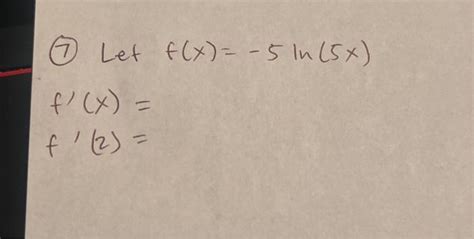 ⑦ Let f(x) = -5 ln(5x)
f'(x) =
f'(2) =